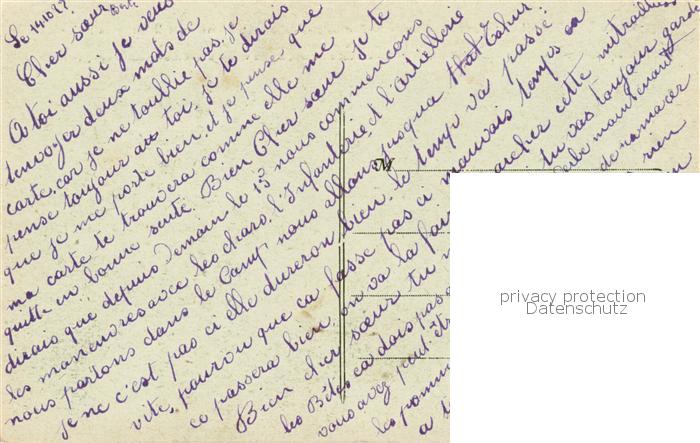 Le 14 10 2?
Cher sœur
A toi aussi je veus
tenvoyer deux mots de
carte, car je ne toublie pas, je
pense toujour au toi, je te dirais
que je me porte bien, et je pense que
ma carte te trouvera comme elle me
quitte en bonne sente. Bien Cher sœur je te
dirais que depuis Demain le 13 nous commencons
les manœuvres avec les chars, l'Infanterie, et l'artiellerie
nous partons dans le Camp nous allons jusqua
je ne c'est pas ci elle dureron bien le temps va passé
vite, pourvu que ca fasse pas ci mauvais temps
ce passera bien on va la faire marcher cette mitrailleuse
Bien cher sœur tu tu vas toujour garder
les Bêtes ca dois pas maintenant
vous avez peut-êtr de ramacer
les pomm rien
a t
M
privacy protection
Datenschutz